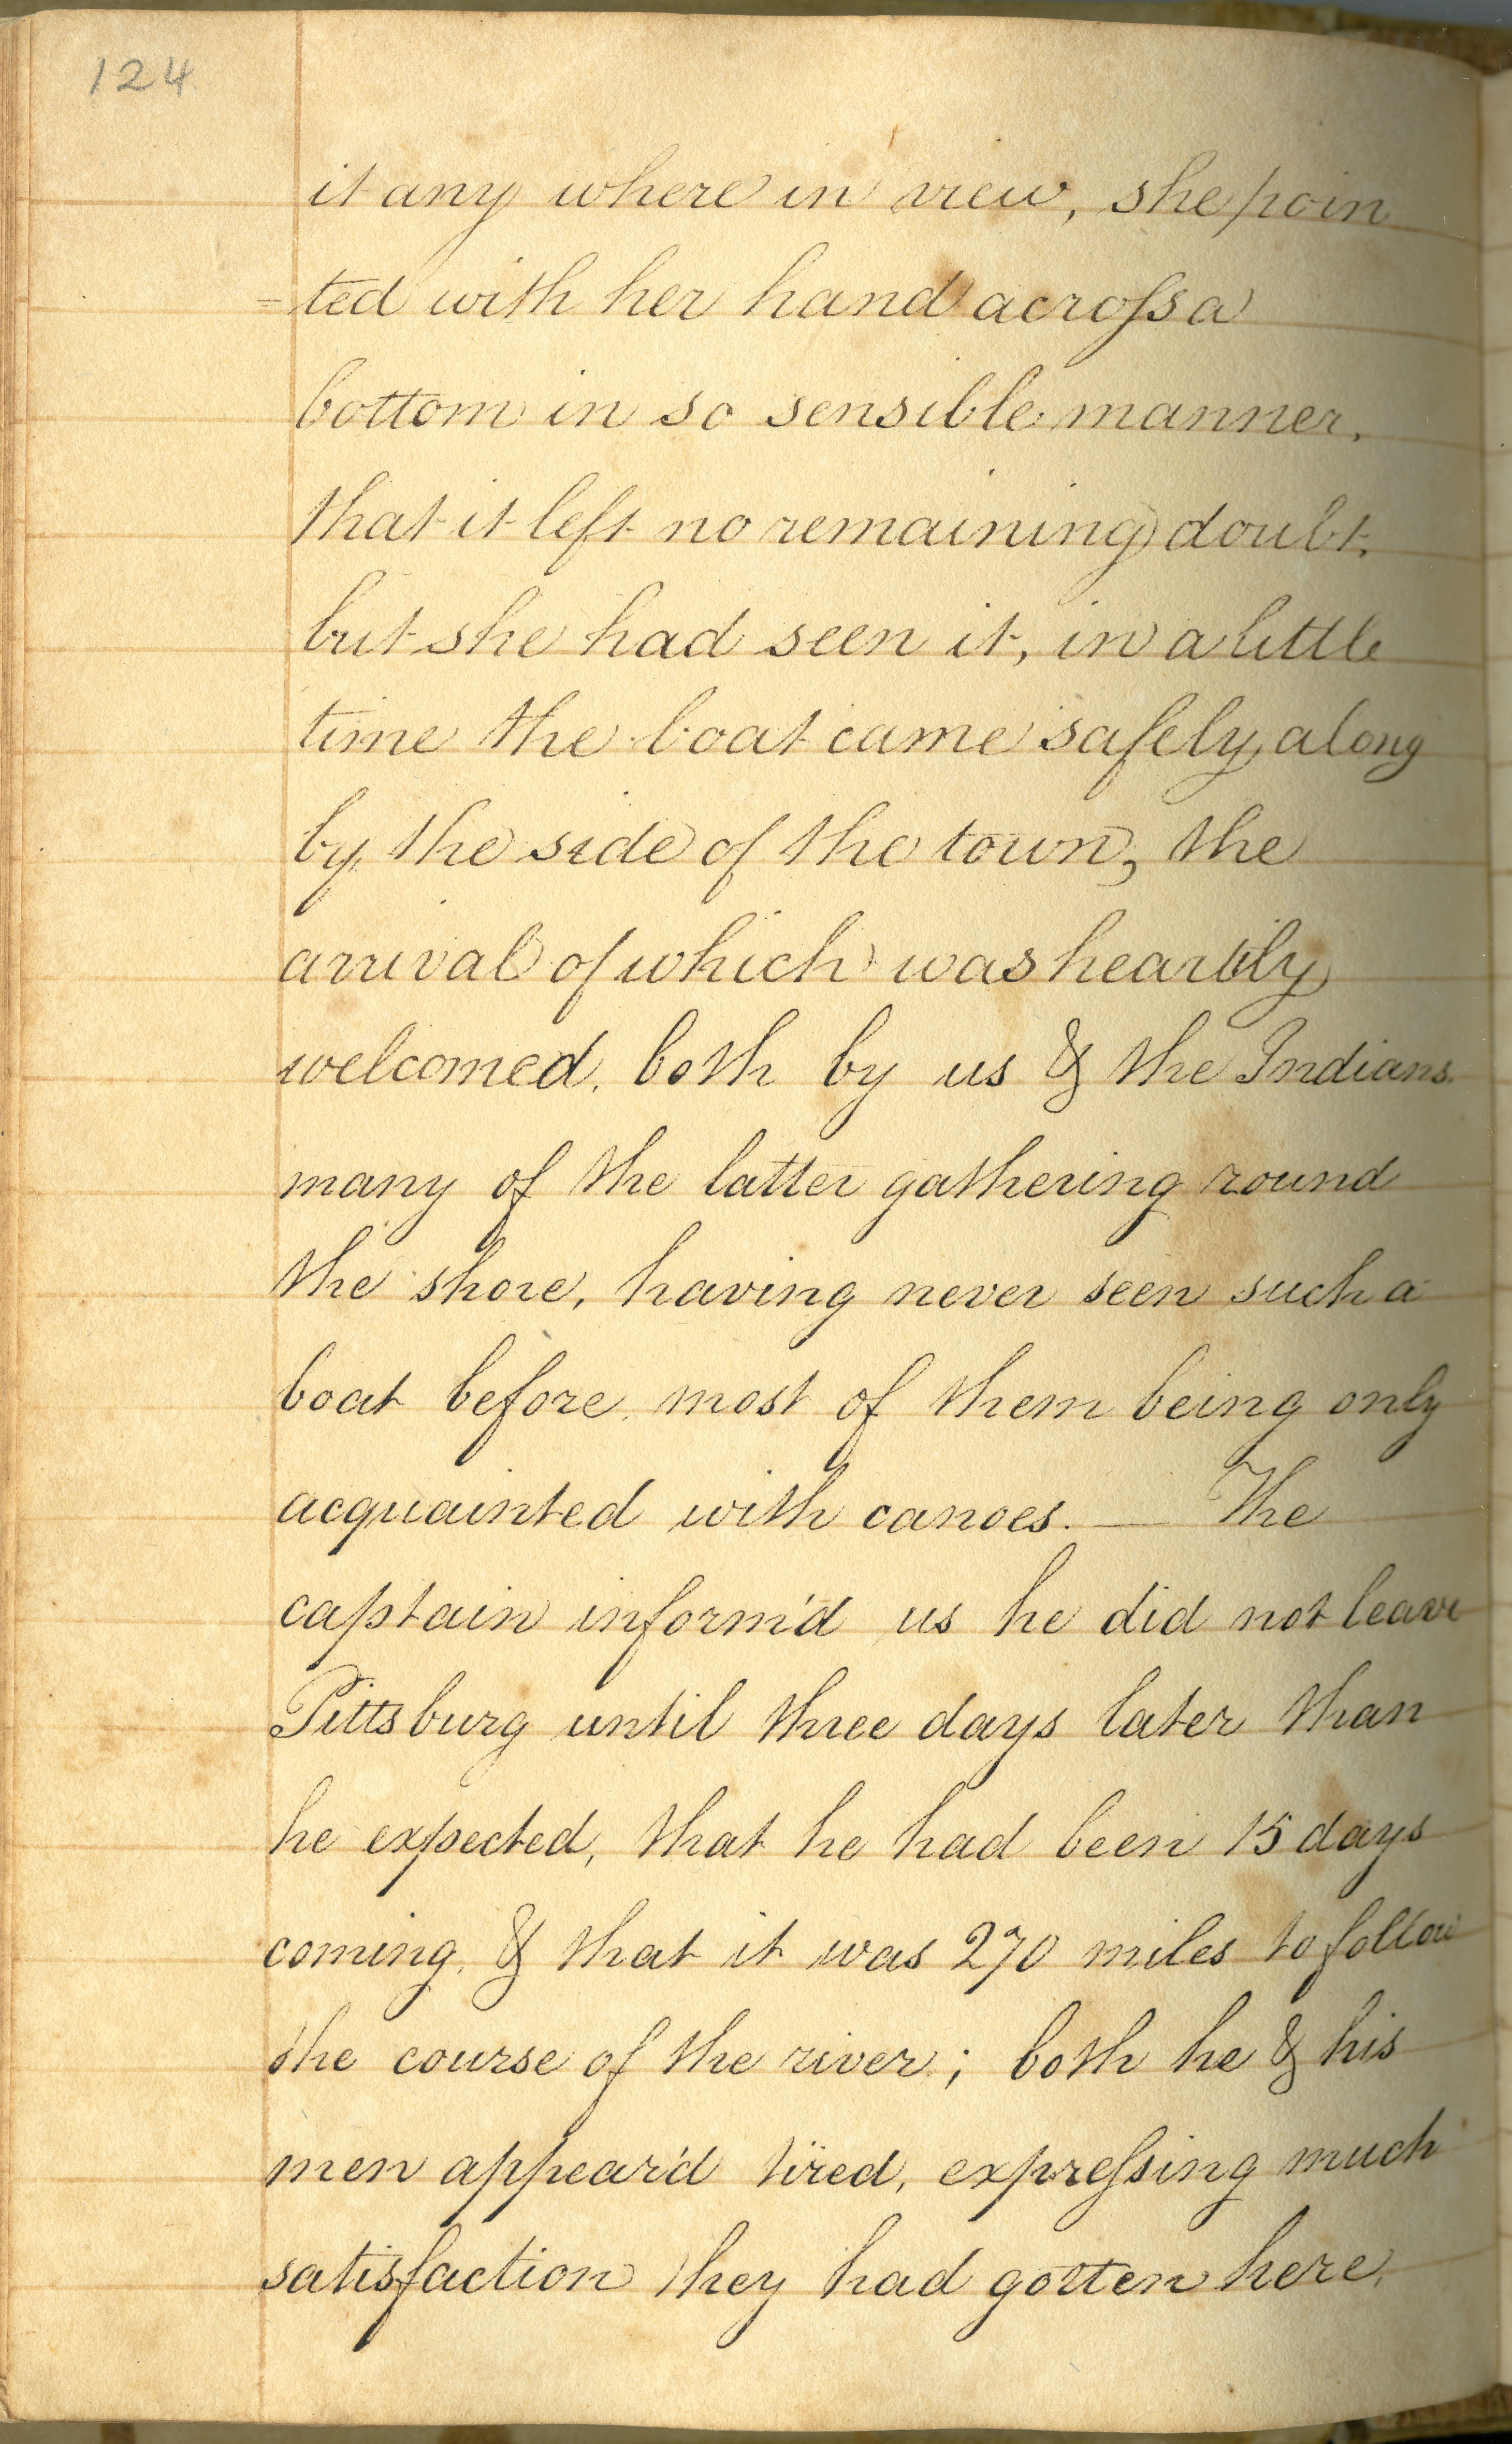 124
it any where in view, she poin
=ted with her hand acroſs a
bottom in so sensible manner,
that it left no remaining doubt,
but she had seen it, in a little
time the boat came safely along
by the side of the town, the
arrival of which was heartily
welcomed, both by us & the Indians.
many of the latter gathering round
the shore, having never seen such a
boat before, most of them being only
acquainted with canoes. — The
captain inform'd us he did not leave
Pittsburg until three days later than
he expected, that he had been 15 days
coming, & that it was 270 miles to follow
the course of the river; both he & his
men appear'd tired, expreſsing much
satisfaction they had gotten here,